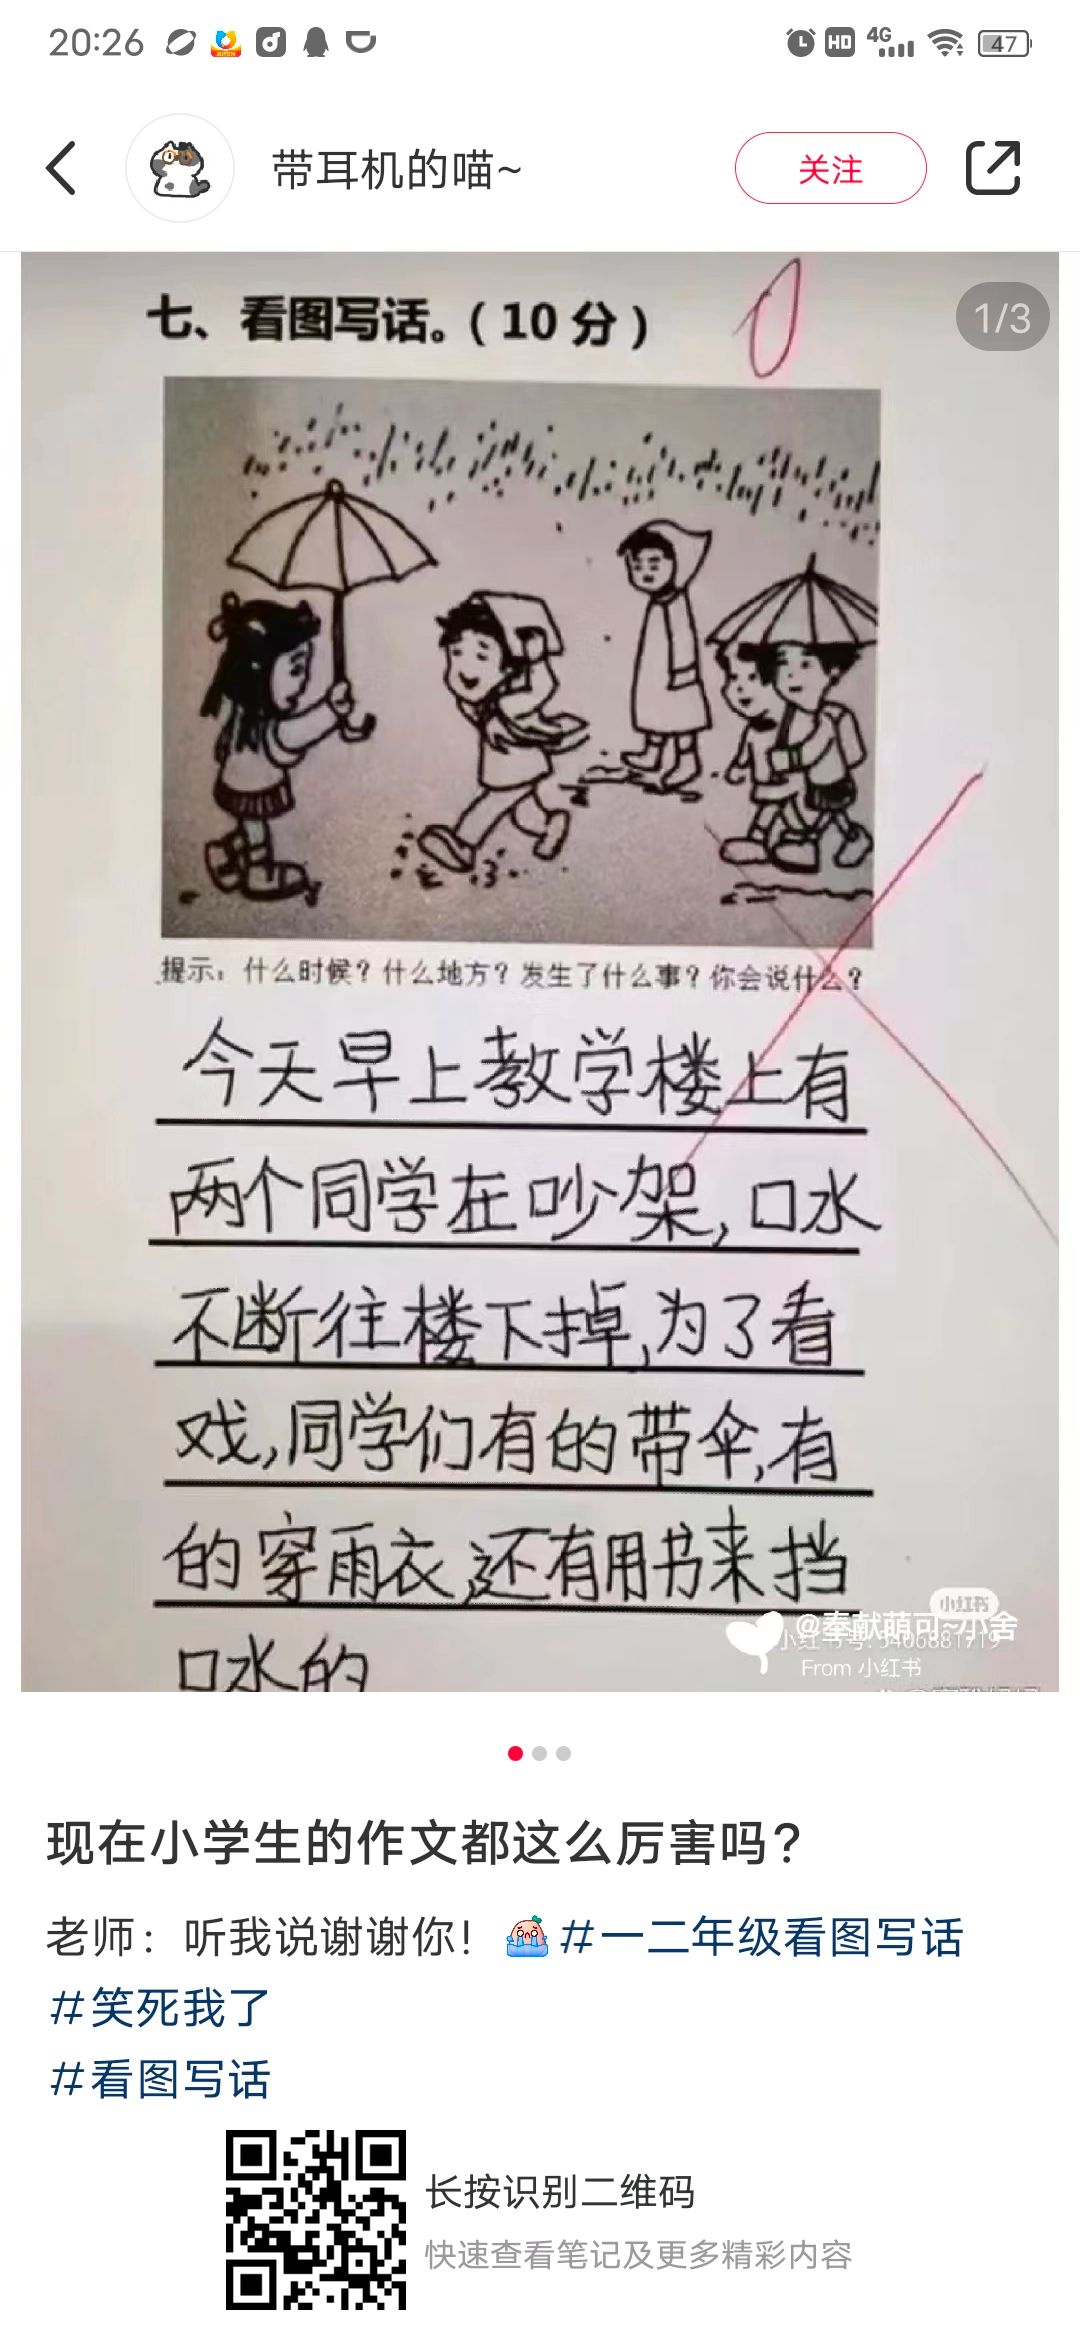 20:26
HD 4G 47
带耳机的喵~
关注
1/3
七、看图写话。(10 分)
0
提示：什么时候？什么地方？发生了什么事？你会说什么？
今天早上教学楼上有
两个同学在吵架,口水
不断往楼下掉,为了看
戏,同学们有的带伞,有
的穿雨衣,还有用书来挡
口水的
小红书
@奉献萌可~小舍
小红书号: 9406881719
From 小红书
现在小学生的作文都这么厉害吗？
老师：听我说谢谢你！#一二年级看图写话
#笑死我了
#看图写话
长按识别二维码
快速查看笔记及更多精彩内容